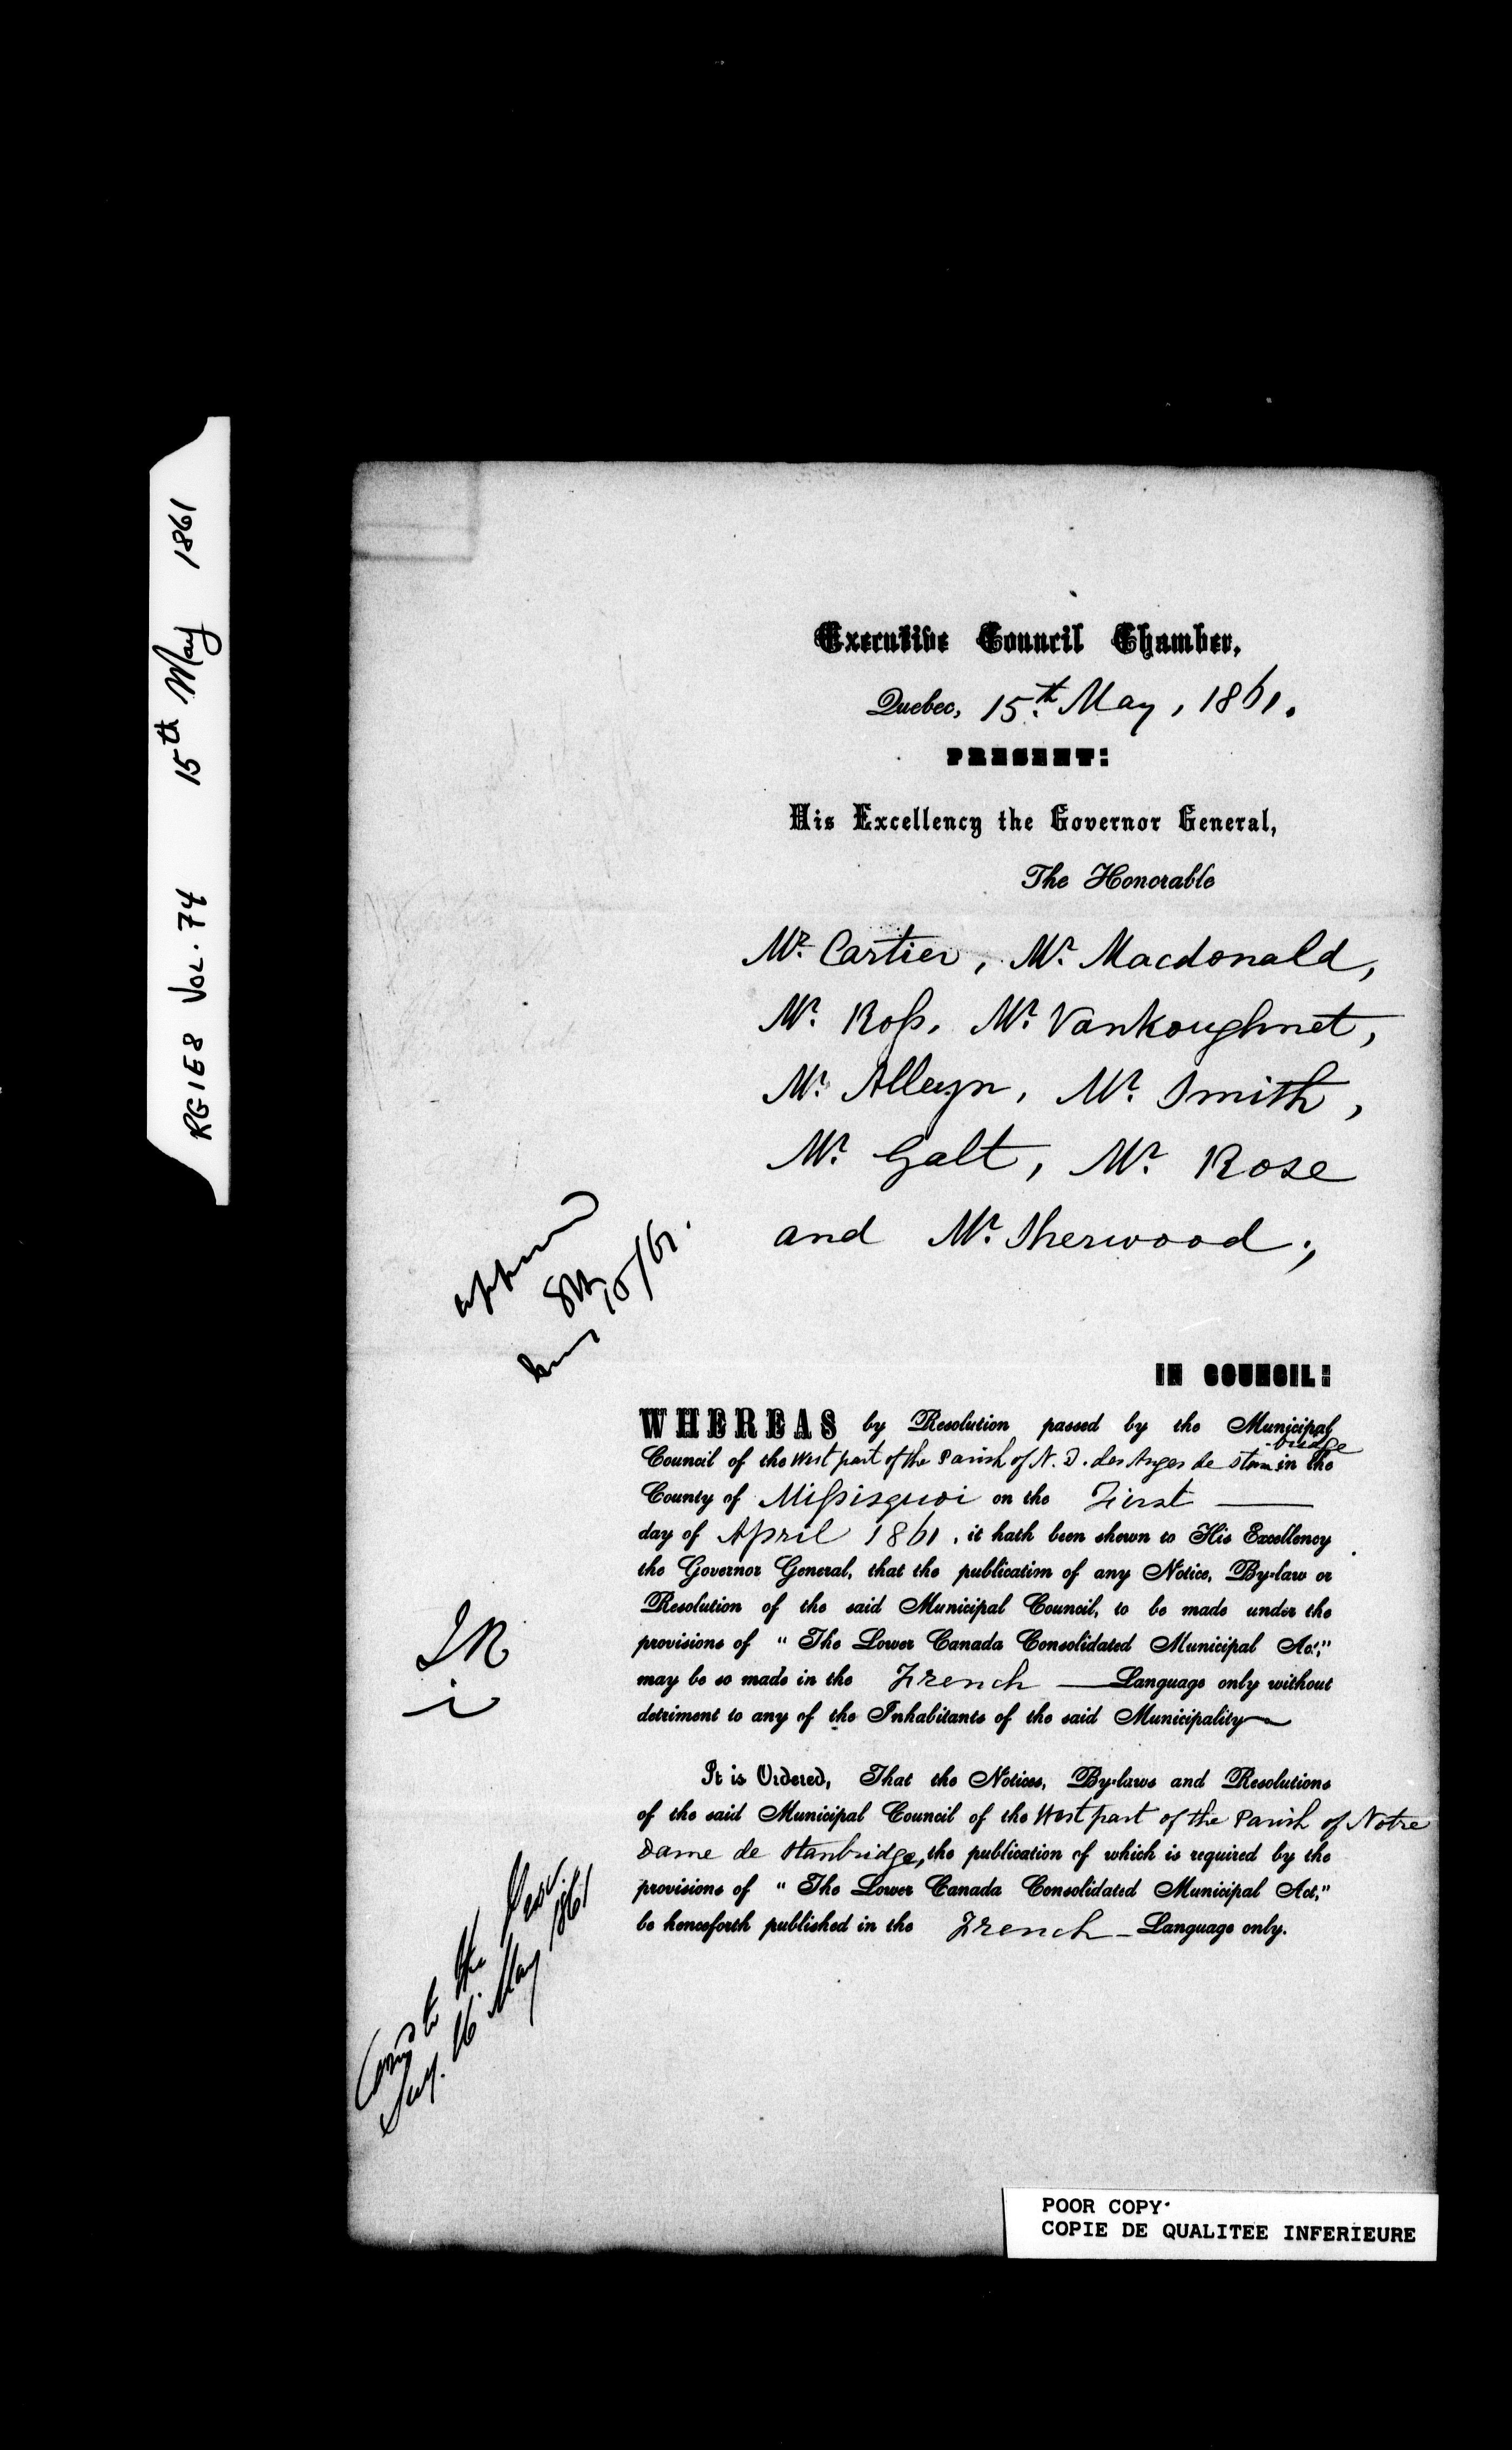 RG1E8 Vol. 74 15th May 1861
Executive Council Chamber,
Quebec, 15th. May, 1861.
PRESENT:
His Excellency the Governor General,
The Honorable
Mr. Cartier, Mr. Macdonald,
Mr. Roſs, Mr. Vankoughnet,
Mr. Alleyn, Mr. Smith,
Mr. Galt, Mr. Rose
and Mr. Sherwood;
IN COUNCIL:
WHEREAS by Resolution passed by the Municipal
-bridge
Council of the West part of the Parish of N. D. des Anges de Stan in the
County of Miſsisquoi on the First
day of April 1861, it hath been shewn to His Excellency
the Governor General, that the publication of any Notice, By-law or
Resolution of the said Municipal Council, to be made under the
provisions of "The Lower Canada Consolidated Municipal Act,"
may be so made in the French Language only without
detriment to any of the Inhabitants of the said Municipality
It is Ordered, That the Notices, By-laws and Resolutions
of the said Municipal Council of the West part of the Parish of Notre
Dame de Stanbridge, the publication of which is required by the
provisions of "The Lower Canada Consolidated Municipal Act,"
be henceforth published in the French Language only.
15/61.
Copy to the Prov.
Secy. 16. May 1861
POOR COPY
COPIE DE QUALITEE INFERIEURE